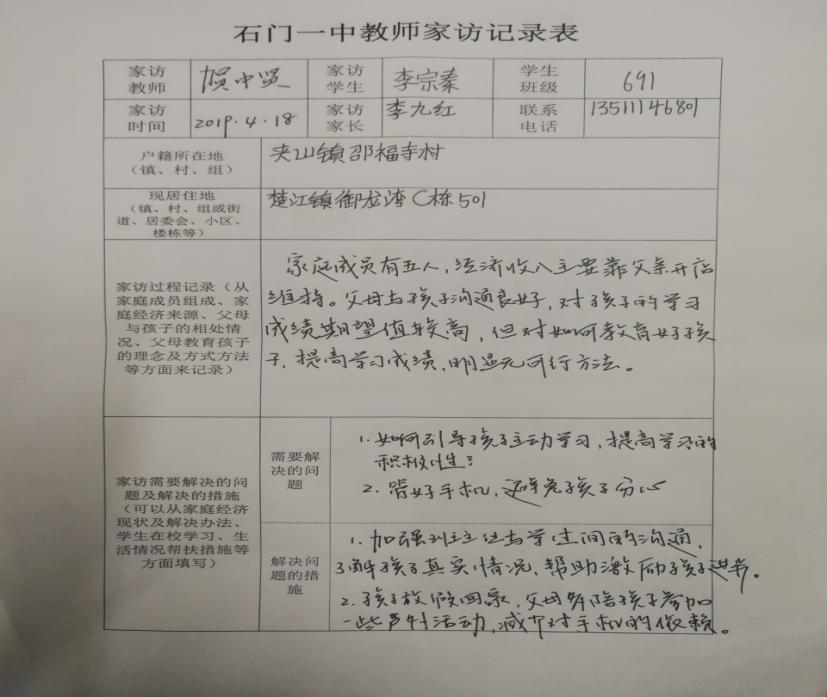 石门一中教师家访记录表
家访教师 贺中贤 家访学生 李宗秦 学生班级 691
家访时间 2019.4.18 家访家长 李九红 联系电话 13511146801
户籍所在地
(镇、村、组)
夹山镇邵福寺村
现居住地
(镇、村、组或街
道、居委会、小区、
楼栋等)
楚江镇御龙湾C栋501
家访过程记录(从
家庭成员组成、家
庭经济来源、父母
与孩子的相处情
况、父母教育孩子
的理念及方式方法
等方面来记录)
家庭成员有五人,经济收入主要靠父亲开店
维持。父母与孩子沟通良好,对孩子的学习
成绩期望值较高,但对如何教育好孩
子,提高学习成绩,明显无可行方法。
家访需要解决的问
题及解决的措施
(可以从家庭经济
现状及解决办法、
学生在校学习、生
活情况帮扶措施等
方面填写)
需要解
决的问
题
1.如何引导孩子主动学习,提高学习的
积极性?
2.管好手机,避免孩子分心
解决问
题的措
施
1.加强班主任与学生间的沟通,
了解孩子真实情况、帮助激励孩子进步。
2.孩子放假回家,父母多陪孩子参加
一些户外活动,减少对手机的依赖。